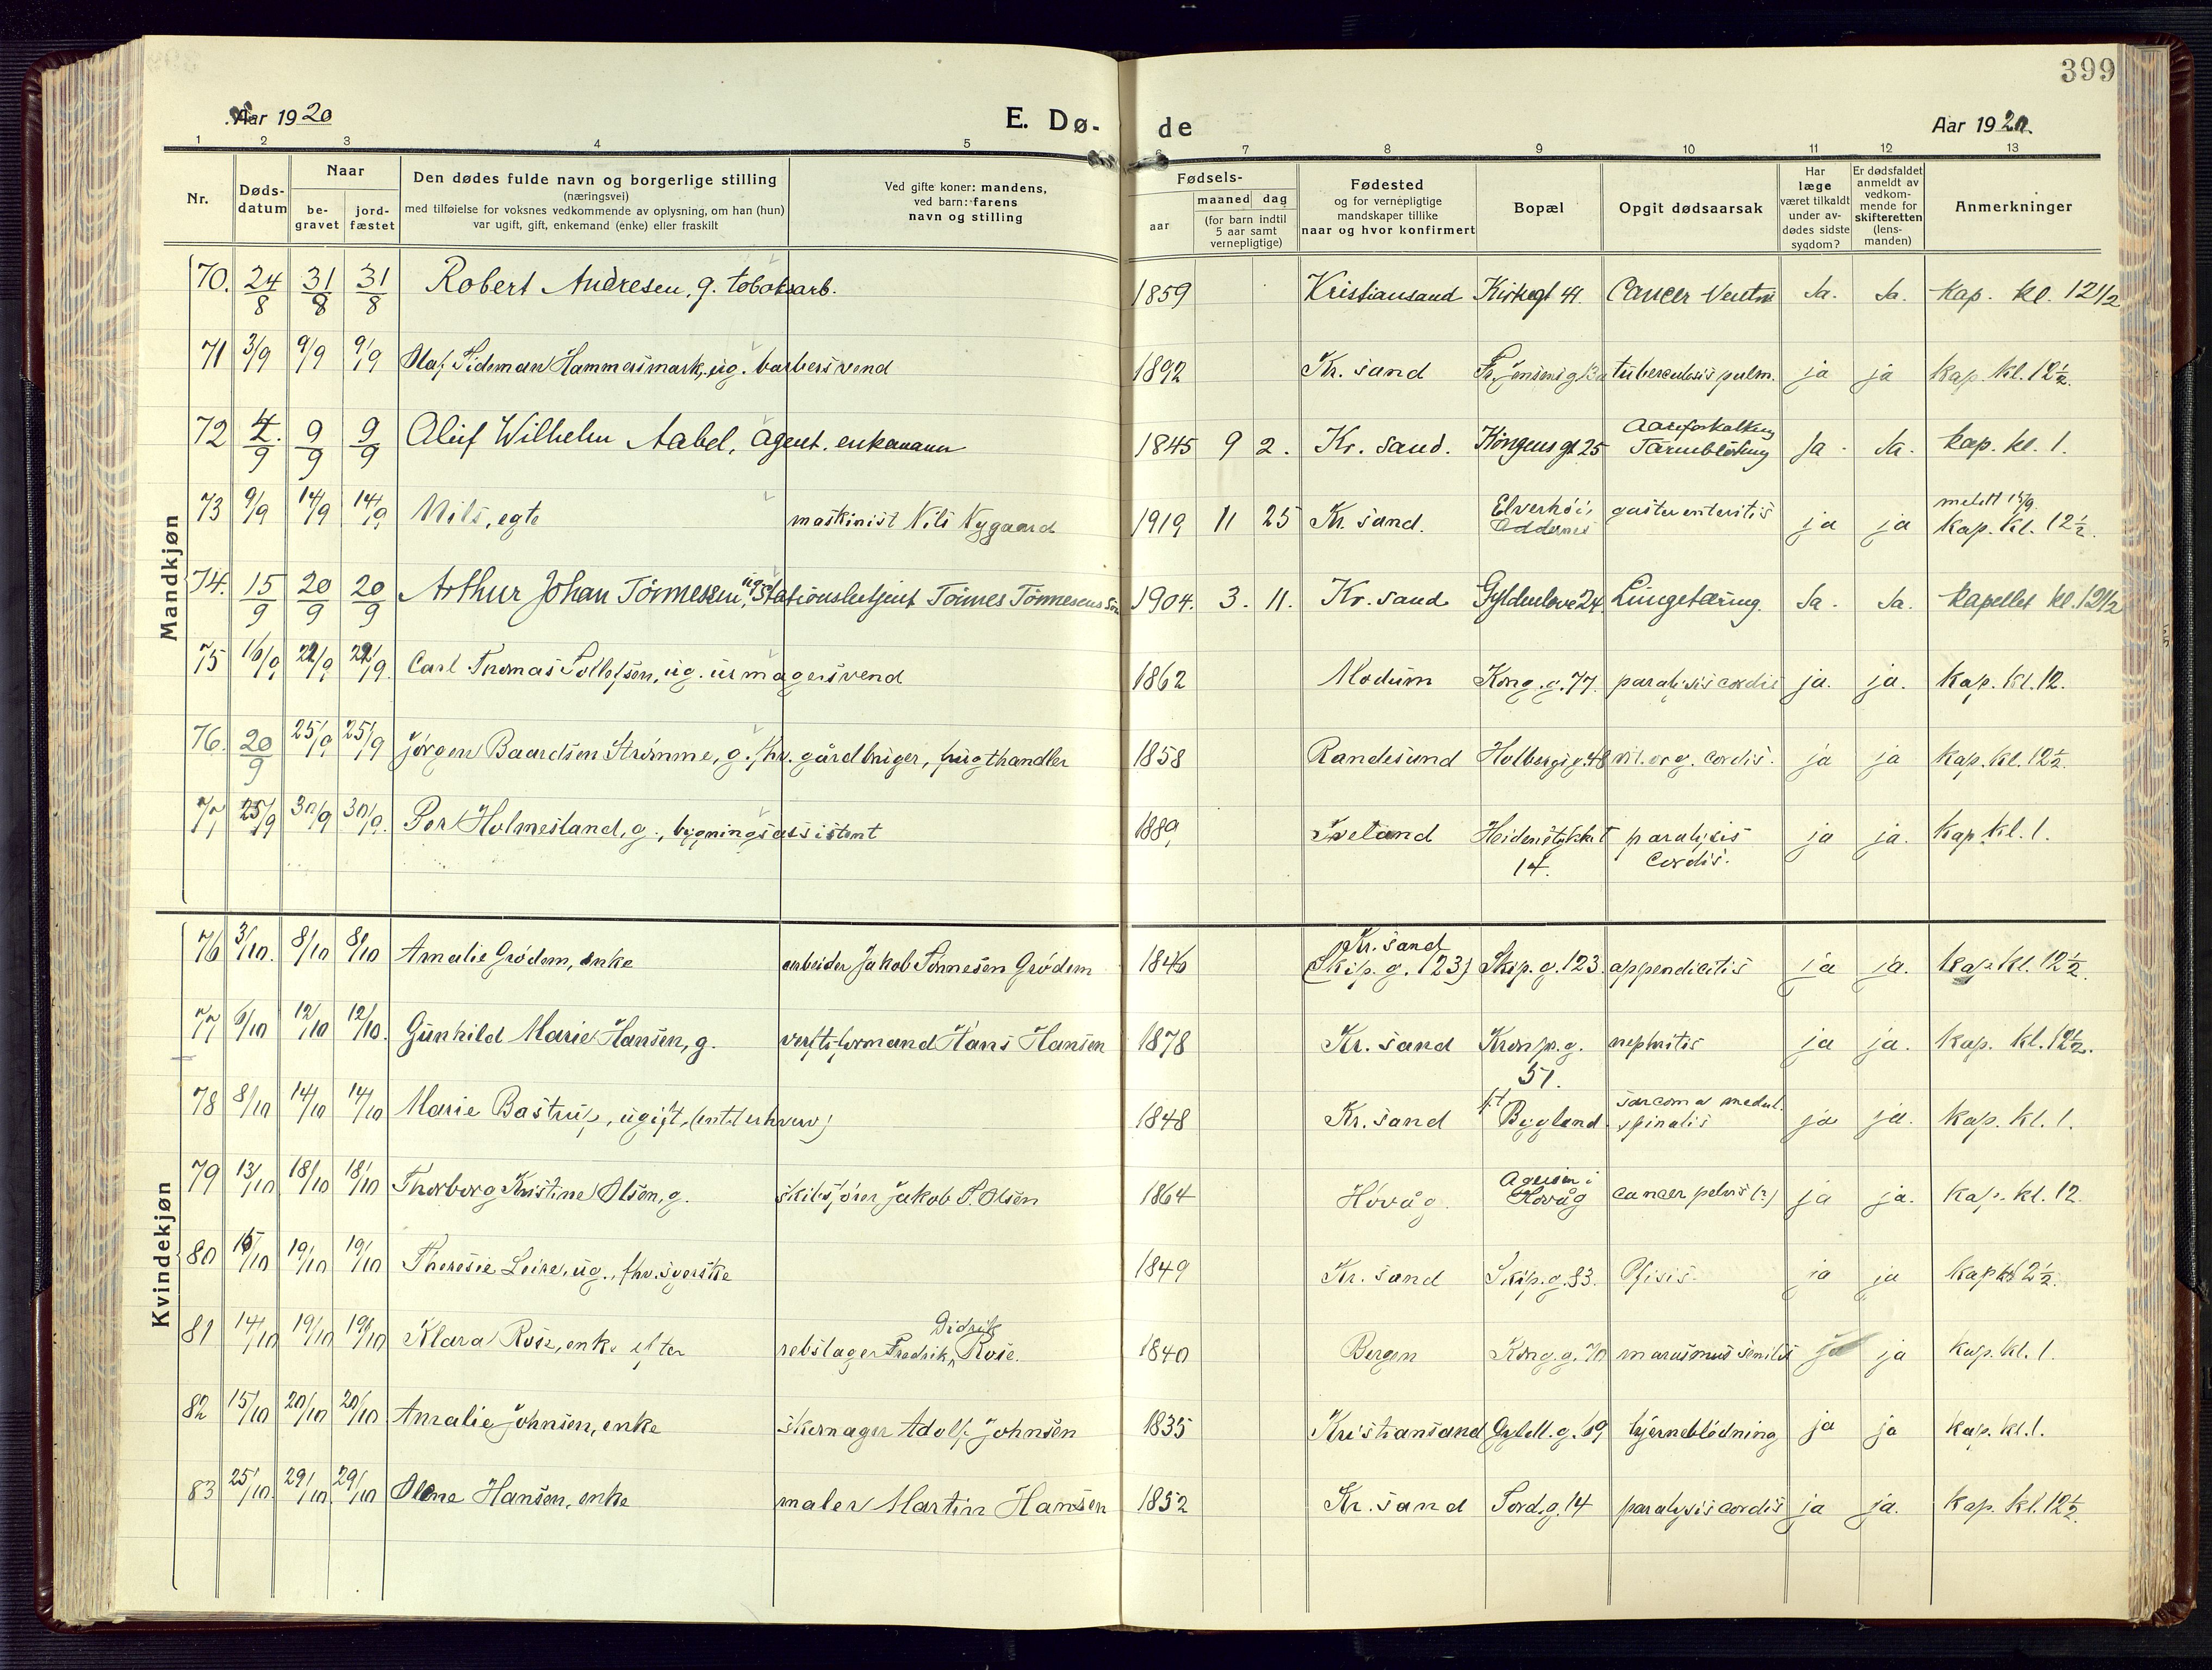 399
Aar 1920 E. Dø- de Aar 1920.
1 2 3 4 5 6 7 8 9 10 11 12 13
Nr. Døds-datum Naar begravet jordfæstet Den dødes fulde navn og borgerlige stilling (næringsvei) med tilføielse for voksnes vedkommende av oplysning, om han (hun) var ugift, gift, enkemand (enke) eller fraskilt Ved gifte koner: mandens, ved barn: farens navn og stilling Fødsels- aar maaned dag (for barn indtil 5 aar samt vernepligtige) Fødested og for vernepligtige mandskaper tillike naar og hvor konfirmert Bopæl Opgit dødsaarsak Har læge været tilkaldt under avdødes sidste sygdom? Er dødsfaldet anmeldt av vedkommende for skifteretten (lensmanden) Anmerkninger
Mandkjøn
70. 24/8 31/8 31/8 Robert Andresen, g. tobaksarb. 1859 Kristiansand Kirkegt 44 Cancer Ventri Ja. Ja. Kap. kl. 12 1/2
71 3/9 9/9 9/9 Olaf Tideman Hammersmark, ug. barbersvend 1892 Kr. sand tuberculosis pulm. ja ja Kap. kl. 12 1/2.
72 4/9 9/9 9/9 Oluf Wilhelm Aabel, Agent. enkemann 1845 9 2. Kr. sand. Kongens gt 25 Aareforkalkning Tarmblödning Ja. Ja. kap. kl. 1.
73 9/9 14/9 14/9 Nils, egte maskinist Nils Nygaard 1919 11 25 Kr. sand. Elverhöi, Oddernes gastroenteritis ja ja Kap. kl. 12 1/2.
74. 15/9 20/9 20/9 Arthur Johan Tönnesen, ug. Stationsbetjent Tönnes Tönnesens Sön 1904. 3. 11. Kr. sand Gyldenlöve 24 Lungetæring. Ja. Ja. kapellet kl. 12 1/2
75 16/9 22/9 22/9 Carl Thomas Tollefsen, ug. urmagersvend 1862 Modum Kong. g. 77. paralysis cordis ja. ja. Kap. kl. 12.
76. 20/9 25/9 25/9 Jørgen Baardsen Strømme, g. fhv. gårdbruger, frugthandler 1858 Randesund Holbergs g. 48 vit. org. cordis. ja ja Kap. kl. 12 1/2.
77 25/9 30/9 30/9. Per Holmesland, g., bygningsassistent 1889 Iveland 14. paralysis cordis. ja ja. Kap. kl. 1.
Kvindekjøn
76 3/10. 8/10 8/10 Amalie Grødem, enke arbeider Jakob Tønnesen Grödem 1846 Kr. sand (Skip. g. 123) Skip. g. 123. appendicitis ja ja. Kap. kl. 12 1/2.
77 6/10 12/10 12/10. Gunhild Marie Hansen, g. verftsformand Hans Hansen 1878 Kr. sand Kronp. g. 51. nephritis ja ja. Kap. kl. 12 1/2.
78 8/10 14/10 14/10 Marie Bastrup, ugift, (intet erhverv) 1848 Kr. sand Bygland sarcoma medul. spinalis ja ja. Kap. kl. 1.
79 13/10 18/10 18/10 Thorborg Kristine Olsen, g. skibsfører Jakob T. Olsen 1864 Hövåg. Ageröen i Hövåg cancer pelvis (?) ja ja. Kap. kl. 12.
80 15/10 19/10 19/10 Theresie Leire, ug., fhv. syerske 1849 Kr. sand Skip. g. 83. Ptisis. ja ja Kap. kl. 12 1/2.
81 14/10 19/10 19/10 Klara Rose, enke efter rebslager Fredrik Didrik Rose. 1840 Bergen Kong. g. 70 marasmus senilis ja ja Kap. kl. 1.
82 15/10 20/10 20/10 Amalie Johnsen, enke skomager Adolf Johnsen 1835 Kristiansand Gyldl. g. 69 hjerneblödning ja ja kap. kl. 1.
83 25/10. 29/10. 29/10 Olene Hansen, enke maler Martin Hansen 1852 Kr. sand Tord. g. 14 paralysis cordis ja ja. Kap. kl. 12 1/2.